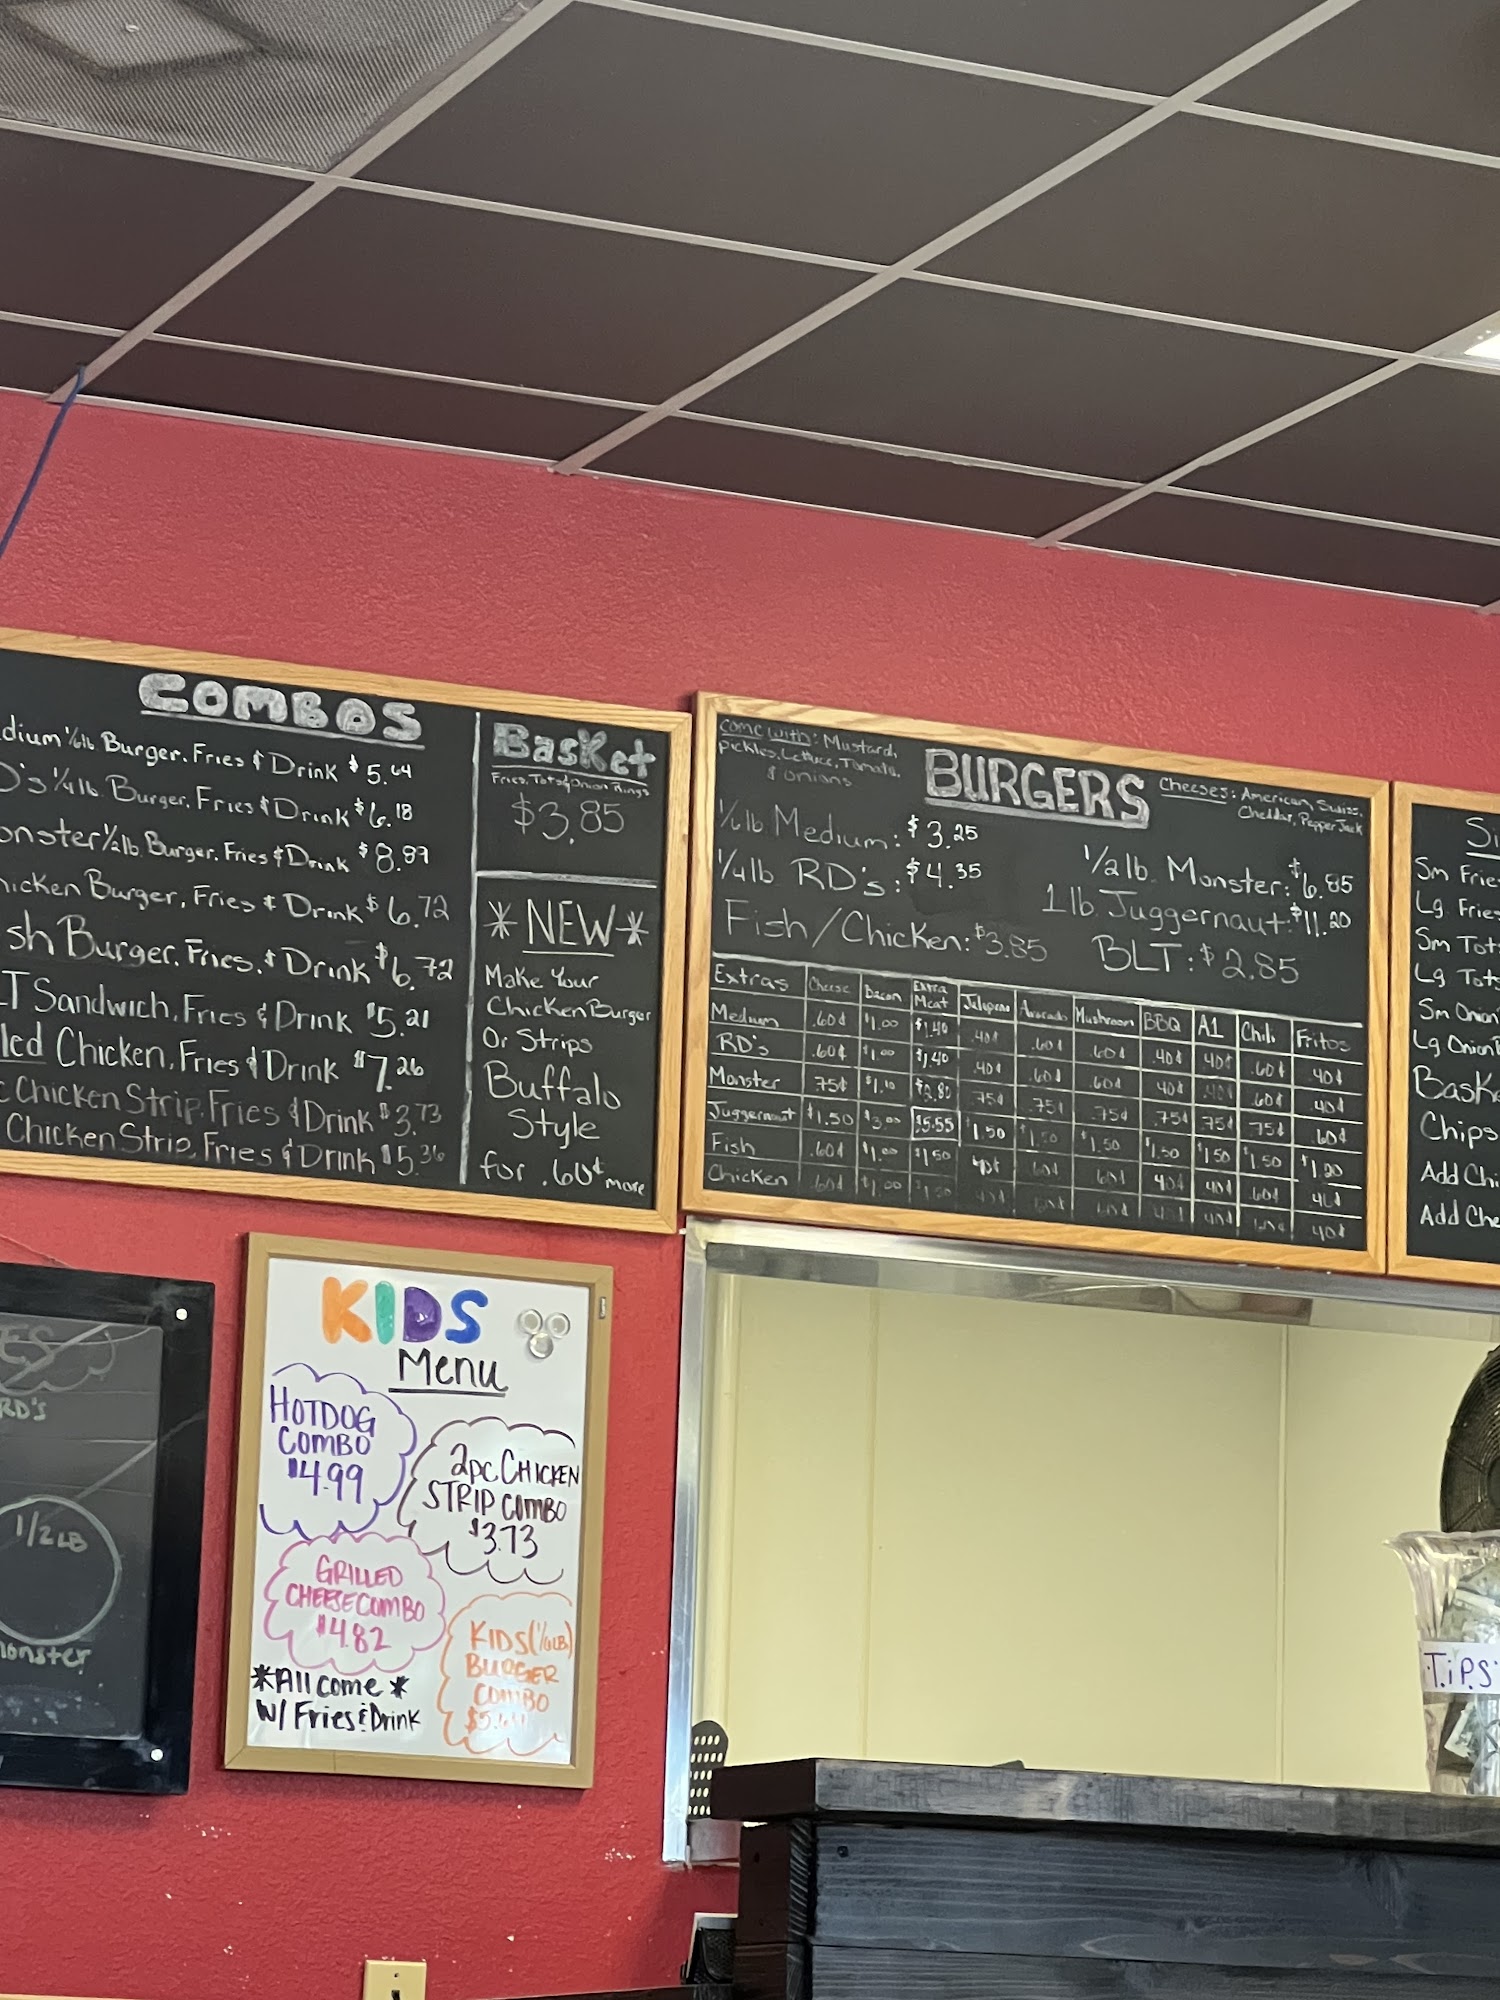 COMBOS
dium 1/6 lb Burger, Fries & Drink $5.64
D's 1/4 lb. Burger, Fries & Drink $6.18
onster 1/2 lb. Burger, Fries & Drink $8.89
hicken Burger, Fries & Drink $6.72
sh Burger, Fries, & Drink $6.72
LT Sandwich, Fries & Drink $5.21
led Chicken, Fries & Drink $7.26
c Chicken Strip, Fries & Drink $3.73
Chicken Strip, Fries & Drink $5.36
Basket
Fries, Tots & Onion Rings
$3.85
*NEW*
Make Your
Chicken Burger
Or Strips
Buffalo
Style
for .60¢ more
Come with: Mustard,
Pickles, Lettuce, Tomato,
& Onions
BURGERS
Cheeses: American, Swiss,
Cheddar, Pepper Jack
1/6 lb Medium: $3.25
1/4 lb RD's: $4.35
Fish/Chicken: $3.85
1/2 lb. Monster: $6.85
1 lb. Juggernaut: $11.20
BLT: $2.85
Extras Cheese Bacon Extra Meat Jalapeno Avocado Mushroom BBQ A1 Chili Fritos
Medium .60¢ $1.00 $1.40 .40¢ .60¢ .60¢ .40¢ 40¢ .60¢ .40¢
RD's .60¢ $1.00 $1.40 .40¢ .60¢ .60¢ 40¢ .60¢ .40¢
Monster 75¢ $2.80 75¢ .75¢ .75¢ .75¢ 75¢ 75¢ .60¢
Juggernaut $1.50 $3.00 $5.55 $1.50 $1.50 $1.50 $1.50 $1.50 $1.50 $1.00
Fish .60¢ $1.00 $1.50 40¢ .60¢ .60¢ 40¢ 40¢ .60¢ 40¢
Chicken .60¢ $1.00 40¢ 40¢
Sm Frie
Lg. Fries
Sm Tot
Lg Tots
Sm Onion
Lg Onion
Bask
Chips
Add Chi
Add Che
ES
RD'S
1/2 LB
onster
KIDS
Menu
HOTDOG
COMBO
$4.99
2pc CHICKEN
STRIP COMBO
$3.73
GRILLED
CHEESE COMBO
$4.82
KIDS (1/6 LB)
BURGER
COMBO
$5.64
*All come*
w/ Fries & Drink
T.i.P.S